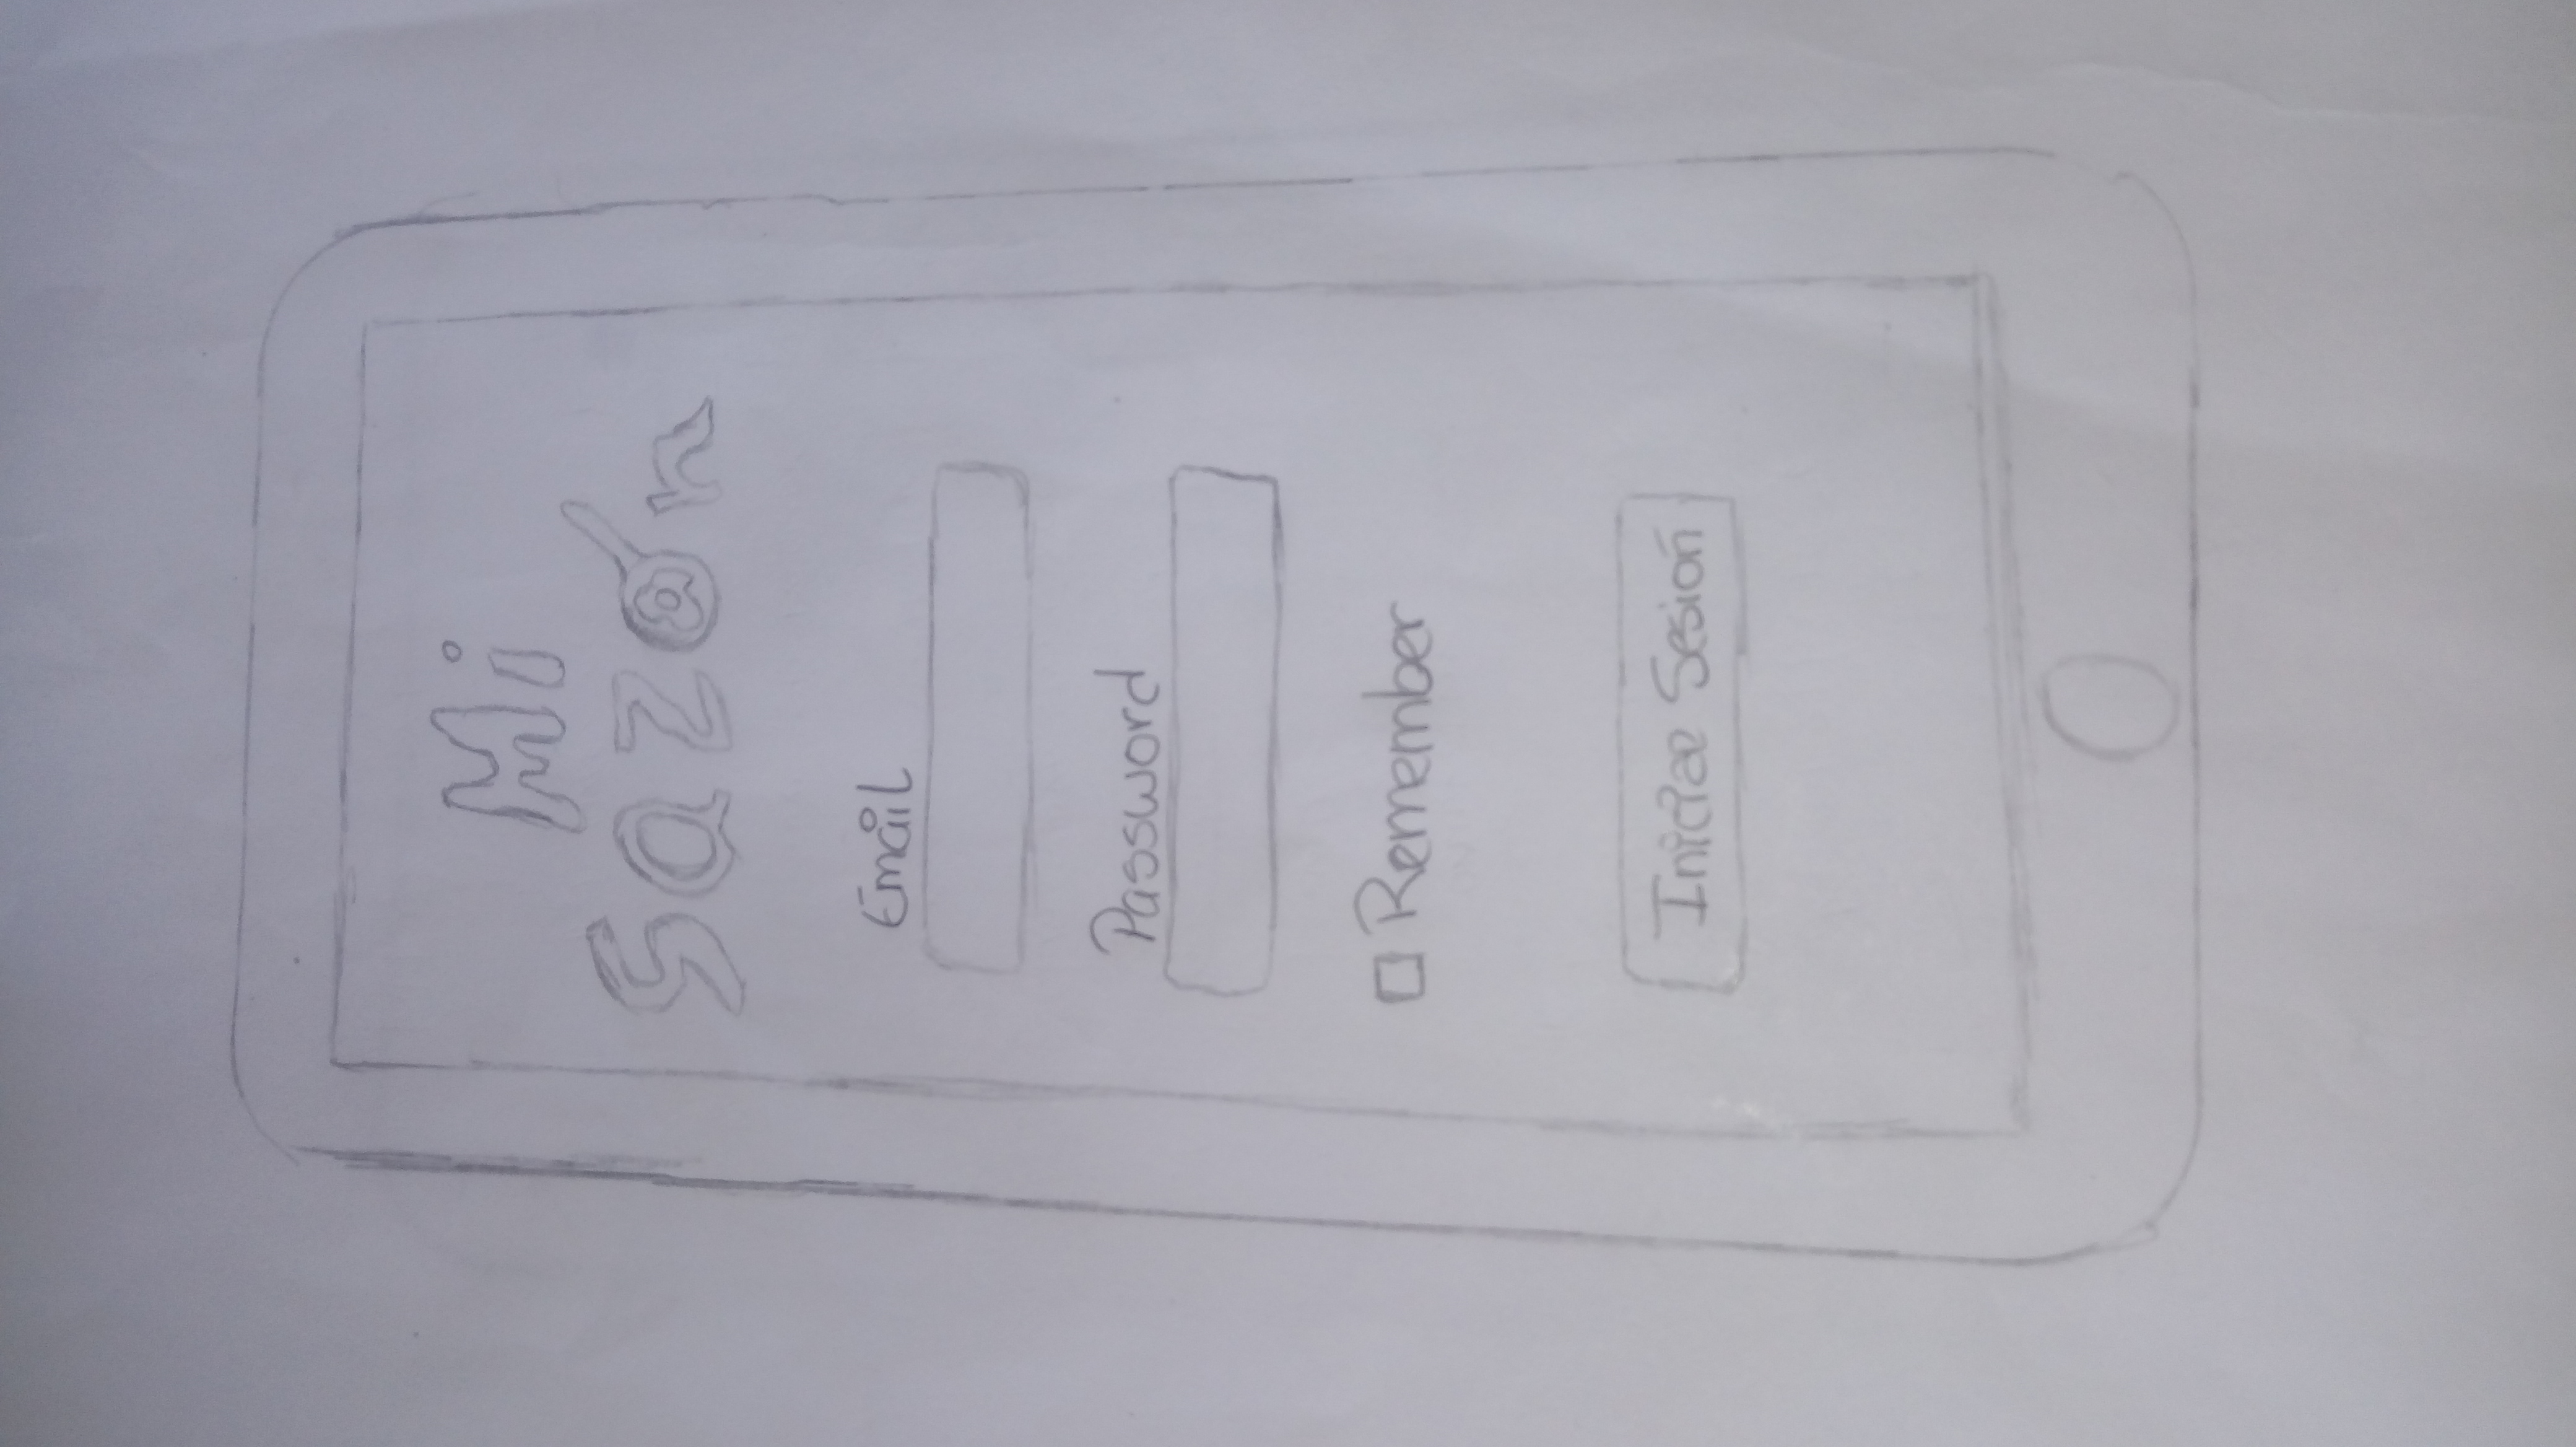 Mi
Sazón
Email
Password
Remember
Iniciar Sesión